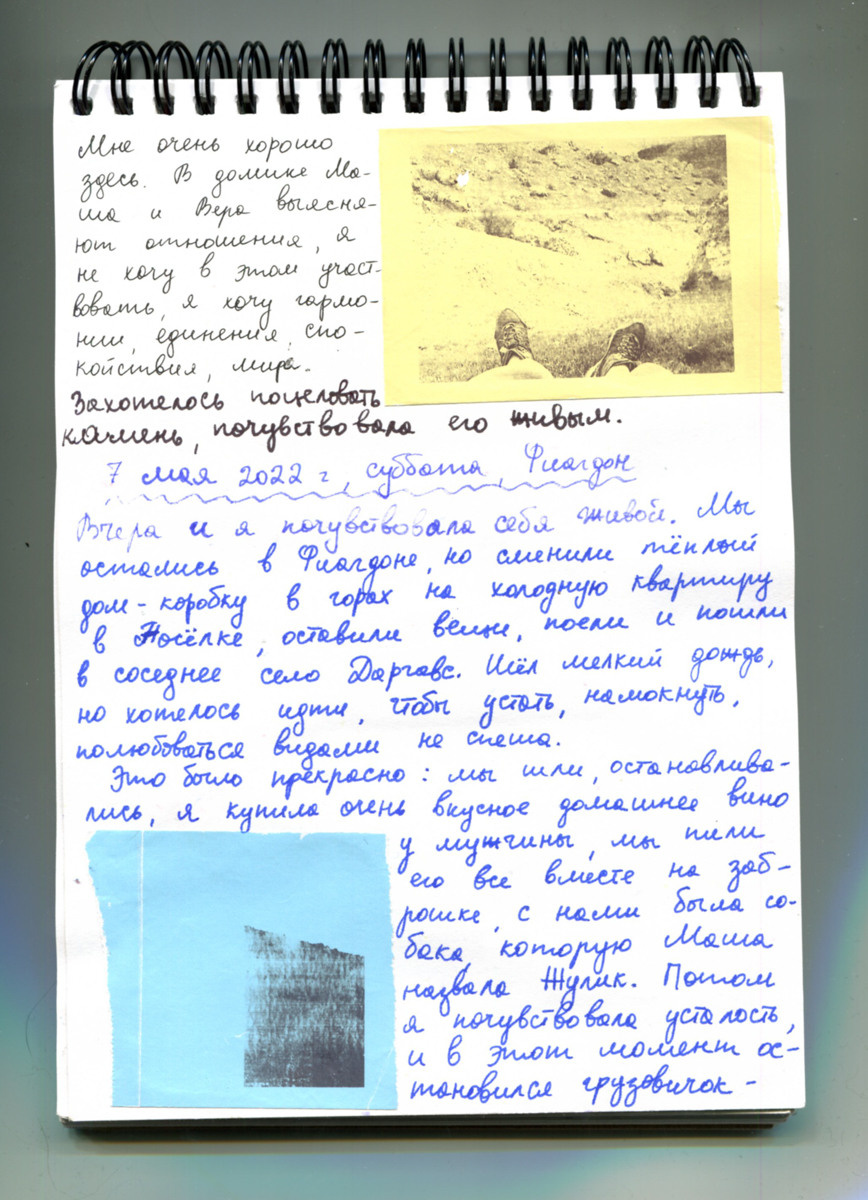 Мне очень хорошо
здесь. В домике Ма-
ша и Вера выясня-
ют отношения, я
не хочу в этом участ-
вовать, я хочу гармо-
нии, единения, спо-
койствия, мира.
Захотелось поцеловать
камень, почувствовала его живым.
7 мая 2022 г, суббота, Фиагдон
Вчера и я почувствовала себя живой. Мы
остались в Фиагдоне, но сменили тёплый
дом-коробку в горах на холодную квартиру
в посёлке, оставили вещи, поели и пошли
в соседнее село Даргавс. Шёл мелкий дождь,
но хотелось идти, чтобы устать, намокнуть,
полюбоваться видами не спеша.
Это было прекрасно: мы шли, останавлива-
лись, я купила очень вкусное домашнее вино
у мужчины, мы пили
его все вместе на заб-
рошке, с нами была со-
бака, которую Маша
назвала Жулик. Потом
я почувствовала усталость,
и в этот момент ос-
тановился грузовичок-